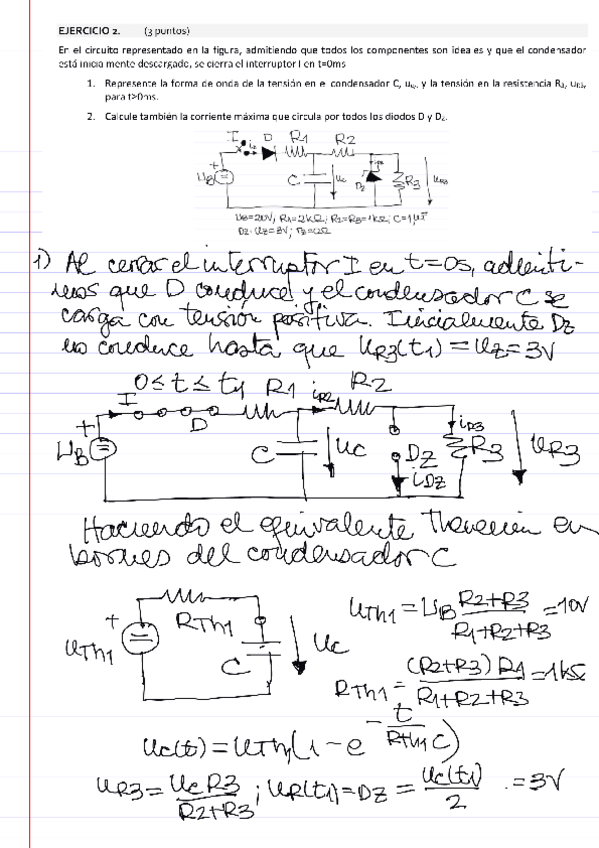 EJERCICIO 2. (3 puntos)
En el circuito representado en la figura, admitiendo que todos los componentes son idea es y que el condensador
está inicia mente descargado, se cierra el interruptor I en t=0ms
1. Represente la forma de onda de la tensión en e condensador C, uc, y la tensión en la resistencia R3, uR3,
para t>0ms.
2. Calcule también la corriente máxima que circula por todos los diodos D y Dz.
I D R1 R2
+ UB C uc Dz R3 UR3
UB=20V; R1=2kΩ; R2=R3=1kΩ; C=1µF
DZ: UZ=3V; rz=0Ω
1) Al cerrar el interruptor I en t=0s, admiti-
mos que D conduce y el condensador C se
carga con tensión positiva. Inicialmente Dz
no conduce hasta que UR3(t1)=UZ=3V
0≤t≤t1 R1 iR2 R2
I D
+ UB C UC DZ iDZ iR3 R3 UR3
Haciendo el equivalente Thevenin en
bornes del condensador C
+ UTh1 RTh1 C UC
UTh1=UB R2+R3 / R1+R2+R3 =10V
RTh1= (R2+R3)R1 / R1+R2+R3 =1kΩ
UC(t)=UTh1(1-e^-t/RTh1C)
UR3= UC R3 / R2+R3 ; UR(t1)=DZ= UC(t1) / 2 =3V